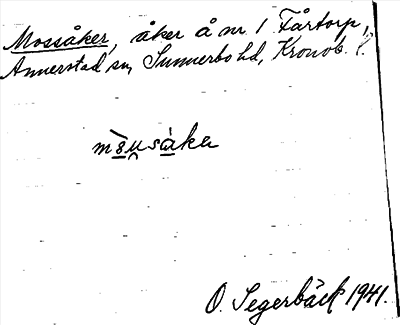 Mossåker, åker å nr 1 Fårtorp,
Annerstad sn, Sunnerbo hd, Kronob. l.
O. Segerbäck 1941.